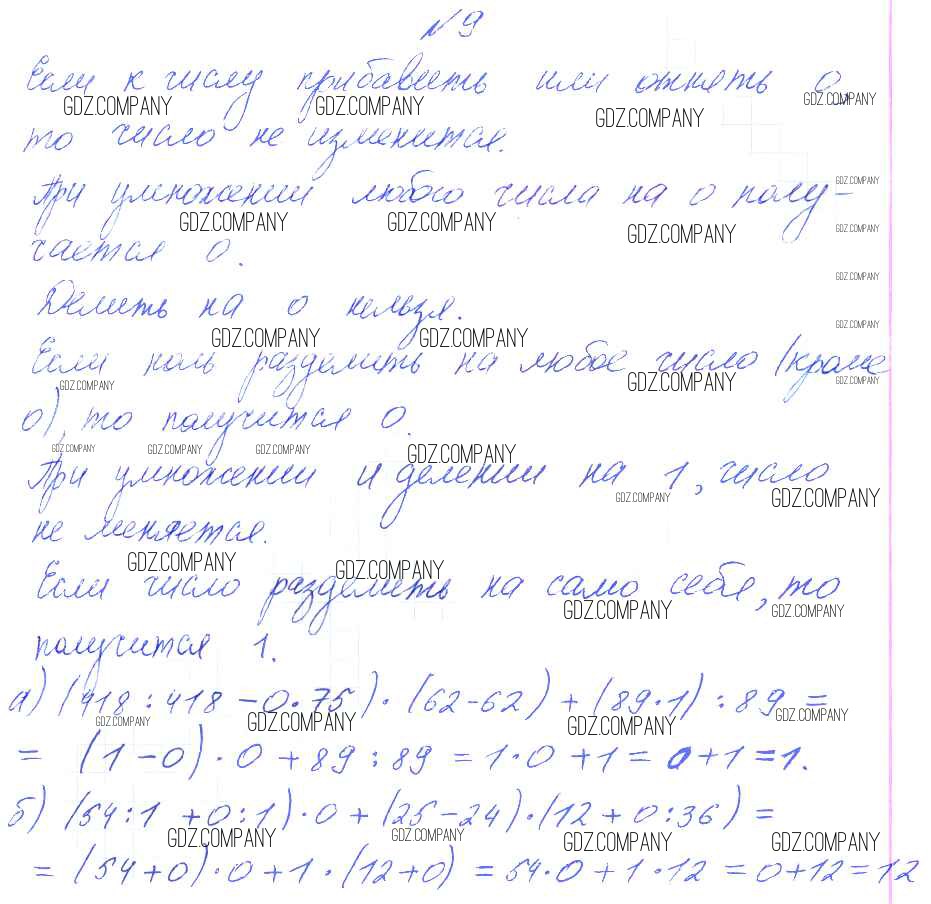 № 9
Если к числу прибавить или отнять 0,
то число не изменится.
При умножении любого числа на 0 полу-
чается 0.
Делить на 0 нельзя.
Если ноль разделить на любое число (кроме
0), то получится 0.
При умножении и делении на 1, число
не меняется.
Если число разделить на само себя, то
получится 1.
а) (418 : 418 - 0 · 75) · (62 - 62) + (89 · 1) : 89 =
= (1 - 0) · 0 + 89 : 89 = 1 · 0 + 1 = 0 + 1 = 1.
б) (54 : 1 + 0 : 1) · 0 + (25 - 24) · (12 + 0 : 36) =
= (54 + 0) · 0 + 1 · (12 + 0) = 54 · 0 + 1 · 12 = 0 + 12 = 12
GDZ.COMPANY